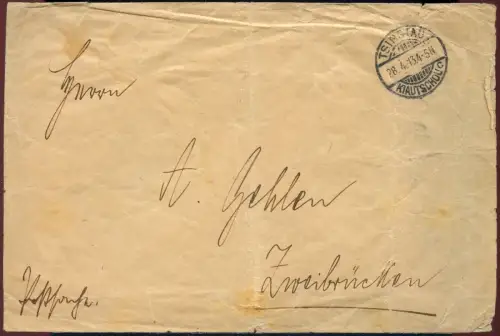 TSINGTAU
28.4.13.4-5N
KIAUTSCHOU
Herrn
A. Gehlen
Zweibrücken
Postsache.